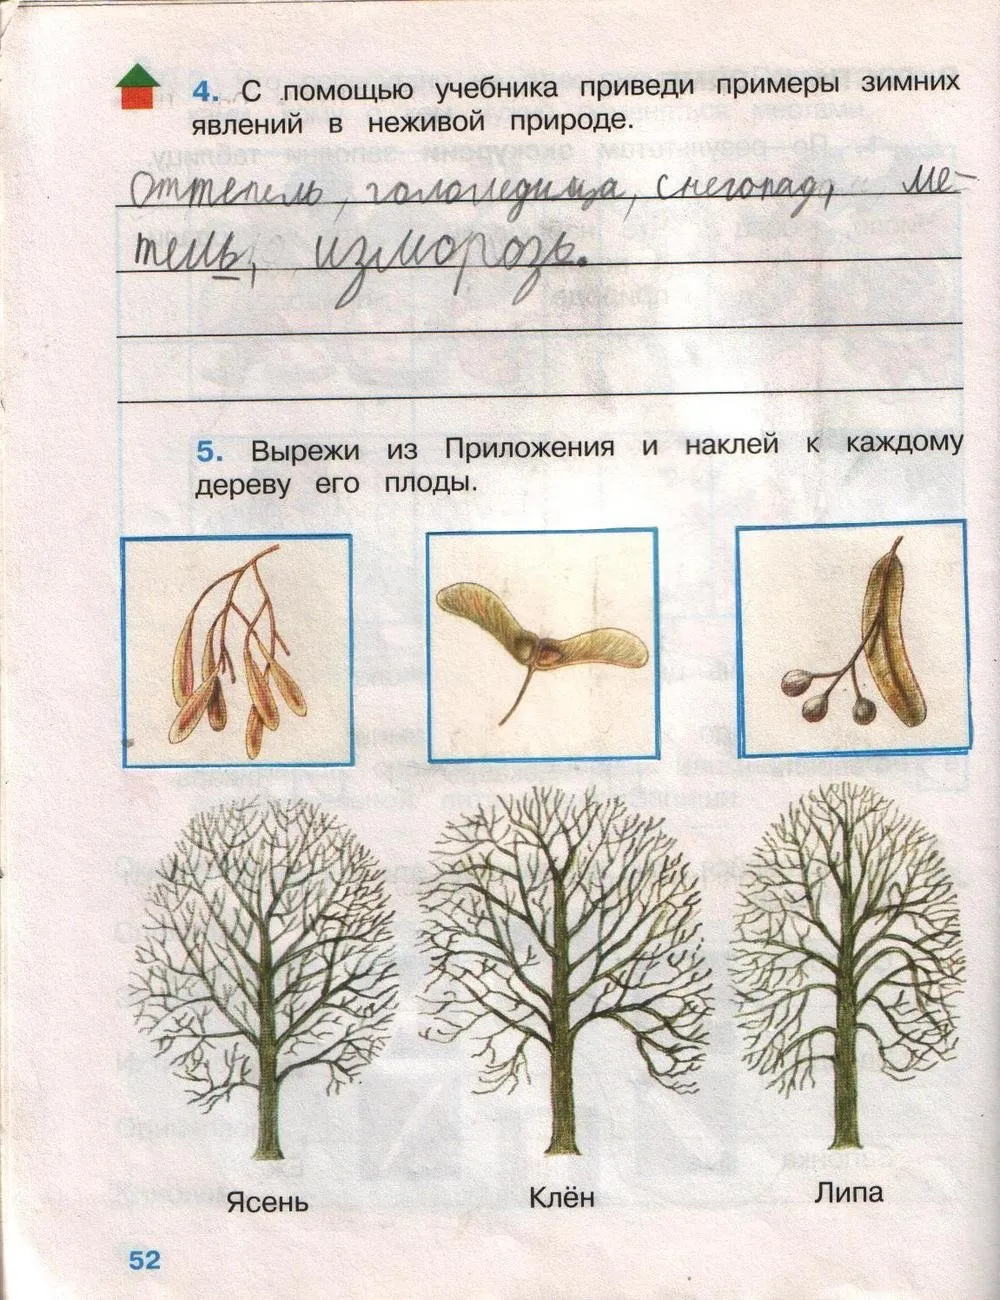 4. С помощью учебника приведи примеры зимних
явлений в неживой природе.
Оттепель, гололедица, снегопад, ме-
тель, изморозь.
5. Вырежи из Приложения и наклей к каждому
дереву его плоды.
Ясень Клён Липа
52